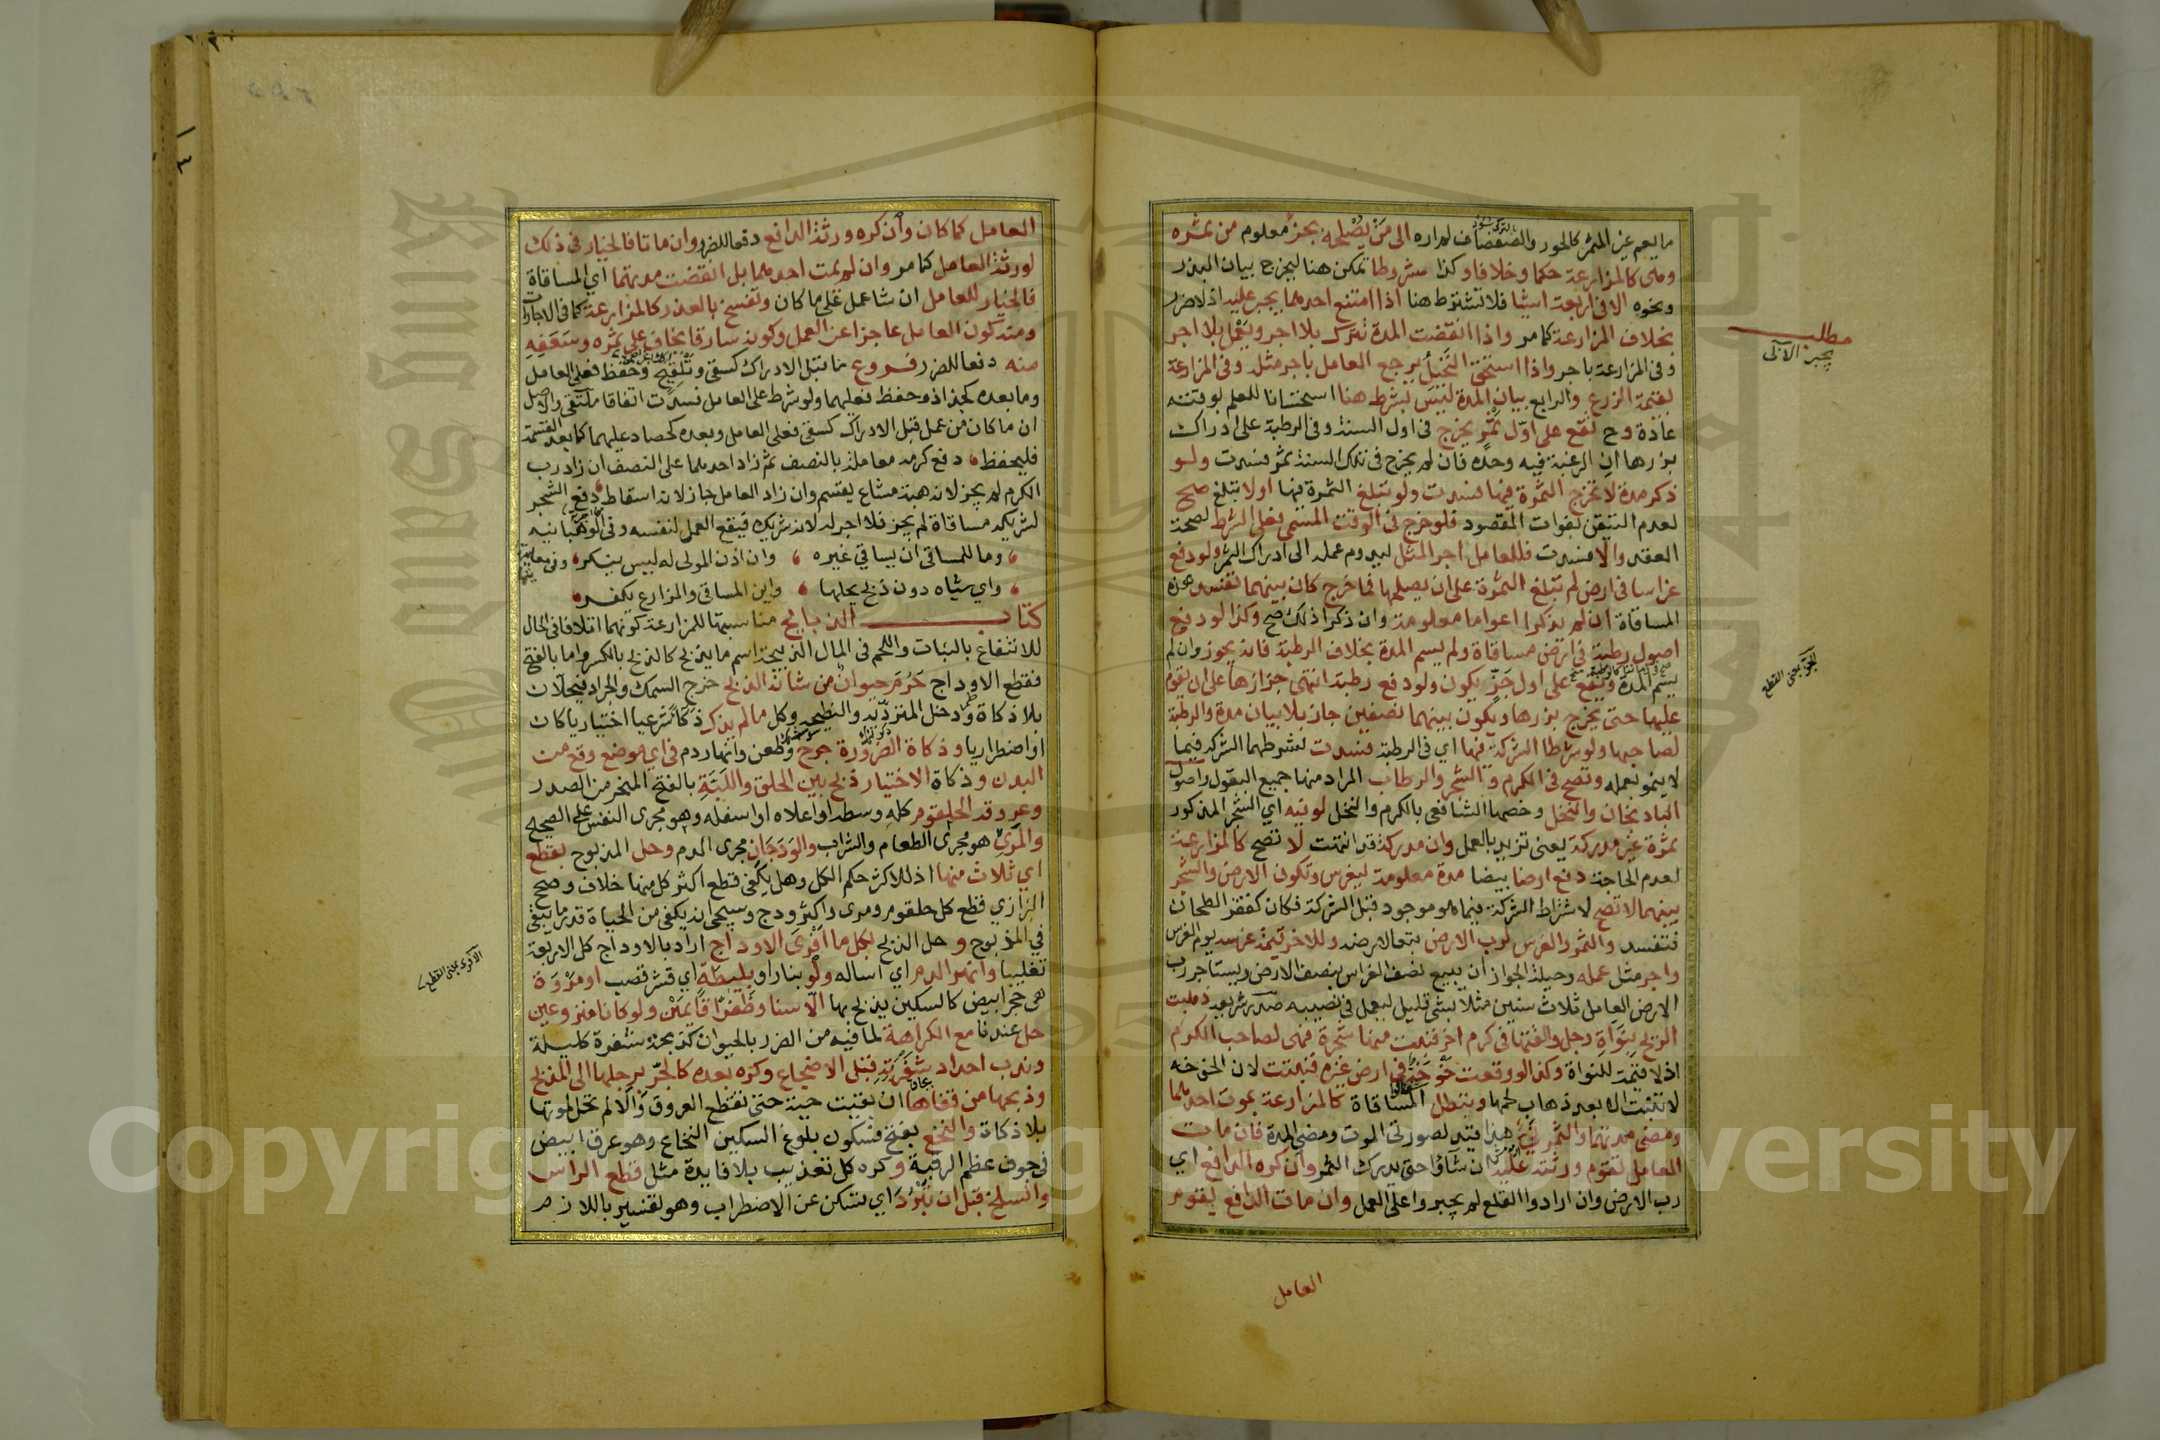 ما يعم غير المثمر كالحور والصفصاف لم اره الى من يصلحه بجزء معلوم من ثمره
وهى كالمزارعة حكما وخلافا وكذا شروطا تمكن هنا ليخرج بيان البذر
ونحوه الا فى اربعة اشيا فلا تشترط هنا اذا امتنع احدهما يجبر عليه اذ لا ضرر
بخلاف المزارعة كما مر واذا انقضت المدة تترك بلا اجر ويعمل بلا اجر
وفى المزارعة باجر واذا استحق النخيل يرجع العامل باجر مثله وفى المزارعة
بقيمة الزرع والرابع بيان المدة ليس بشرط هنا استحسانا للعلم بوقتته
عادة وح تقع على اول ثمر يخرج فى اول السنة وفى الرطبة على ادراك
بزرها ان الرغبة فيه وحده فان لم يخرج فى تلك السنة ثمر فسدت ولو
ذكر مدة لا تخرج الثمرة فيها فسدت ولو تبلغ الثمرة فيها اولا تبلغ صح
لعدم التيقن بفوات المقصود فلو خرج فى الوقت المسمى فعلى الشرط لصحة
العقد والا فسدت فللعامل اجر المثل ليدوم عمله الى ادراك الثمر ولو دفع
غراسا فى ارض لم تبلغ الثمرة على ان يصلحها فما خرج كان بينهما تفسد هذه
المساقاة ان لم يذكرا اعواما معلومة وان ذكرا ذلك صح وكذا لو دفع
اصول رطبة فى ارض مساقاة ولم يسم المدة بخلاف الرطبة فانه يجوز وان لم
يسم المدة ويقع على اول جز يكون ولو دفع رطبة انتهى جزازها على ان يقوم
عليها حتى يخرج بزرها ويكون بينهما نصفين جاز بلا بيان مدة والرطبة
لصاحبها ولو شرطا الشركة فيها اى فى الرطبة فسدت لشرطهما الشركة فيما
لا ينمو بعمله وتصح فى الكرم و الشجر والرطاب المراد منها جميع البقول واصول
الباذنجان والنخل وخصها الشافعى بالكرم والنخل لو فيه اى الشجر المذكور
ثمرة غير مدركة يعنى تزيد بالعمل وان مدركة قد انتهت لا تصح كالمزارعة
لعدم الحاجة دفع ارضا بيضا مدة معلومة ليغرس وتكون الارض والشجر
بينهما لا تصح لاشتراط الشركة فيما هو موجود قبل الشركة فكان كقفيز الطحان
فتفسد والثمر والغرس لرب الارض تبعا لارضه وللاخر قيمة غرسه يوم الغرس
واجر مثل عمله وحيلة الجواز ان يبيع نصف الغراس بنصف الارض ويستاجر رب
الارض العامل ثلاث سنين مثلا بشى قليل ليعمل فى نصيبه صدر شريعة ذهبت
الريح بنواة رجل والقتها فى كرم اخر فنبت منها شجرة فهى لصاحب الكرم
اذ لا قيمة للنواة وكذا لو وقعت خوخة فى ارض غيره فنبتت لان الخوخة
لا تنبت الا بعد ذهاب لحمها وتبطل المساقاة كالمزارعة بموت احدهما
ومضى مدتها والثمر نئ هذا قيد لصورتى الموت ومضى المدة فان مات
العامل تقوم ورثته عليه ان شاؤا حتى يدرك الثمر وان كره الدافع اى
رب الارض وان ارادوا القلع لم يجبروا على العمل وان مات الدافع يقوم
العامل
مطلب
يجبر الآبى
الجز بمعنى القطع
العامل كما كان وان كره ورثة الدافع دفعا للضرر وان ماتا فالخيار فى ذلك
لورثة العامل كما مر وان لم يمت احدهما بل انقضت مدتها اى المساقاة
فالخيار للعامل ان شا عمل على ما كان وتفسخ بالعذر كالمزارعة كما فى الاجارات
ومنه كون العامل عاجزا عن العمل وكونه سارقا يخاف على ثمره وسعفه
منه دفعا للضرر فروع ما قبل الادراك كسقى وتلقيح وحفظ فعلى العامل
وما بعده كجذاذ وحفظ فعليهما ولو شرط على العامل فسدت اتفاقا ملتقى والاصل
ان ما كان من عمل قبل الادراك كسقى فعلى العامل وبعده كحصاد عليهما كما بعد القسمة
فليحفظ دفع كرمه معاملة بالنصف ثم زاد احدهما على النصف ان زاد رب
الكرم لم يجز لانه هبة مشاع يقسم وان زاد العامل جاز لانه اسقاط دفع الشجر
لشريكه مساقاة لم يجز فلا اجر له لانه شريك فيقع العمل لنفسه وفى الوهبانية
وما للمساقى ان يساقى غيره وان اذن المولى له ليس ينكر وفى معاياتها
واى شياه دون ذبح يحلها واين المساقى والمزارع يكفر
كتاب الذبايح مناسبتها للمزارعة كونهما اتلافا فى الحال
للانتفاع بالنبات واللحم فى المال الذبيحة اسم ما يذبح كالذبح بالكسر واما بالفتح
فقطع الاوداج حرم حيوان من شانه الذبح خرج السمك والجراد فيحلان
بلا ذكاة ودخل المتردية والنطيحة وكل ما لم يذك ذكاء شرعيا اختياريا كان
او اضطراريا و ذكاة الضرورة جرح وطعن وانهار دم فى اى موضع وقع من
البدن و ذكاة الاختيار ذبح بين الحلق واللبة بالفتح المنحر من الصدر
وعروقه الحلقوم كله وسطه او اعلاه او اسفله وهو مجرى النفس على الصحيح
والمرى هو مجرى الطعام والشراب والودجان مجرى الدم وحل المذبوح بقطع
اى ثلاث منها اذ للاكثر حكم الكل وهل يكفى قطع اكثر كل منها خلاف وصحح
البزازى قطع كل حلقوم ومرى واكثر ودج وسيجى انه يكفى من الحياة قدر ما يبقى
فى المذبوح و حل الذبح بكل ما افرى الاوداج اراد بالاوداج كل الاربعة
تغليبا وانهر الدم اى اساله ولو بنار او بليطة اى قشر قصب او مروة
هى حجر ابيض كالسكين يذبح بها الا سنا وظفرا قائمين ولو كانا منزوعين
حل عندنا مع الكراهة لما فيه من الضرر بالحيوان كذبحه بشفرة كليلة
وندب احداد شفرته قبل الاضجاع وكره بعده كالجر برجلها الى المذبح
وذبحها من قفاها ان بقيت حية حتى تقطع العروق والا لم تحل لموتها
بلا ذكاة والنخع بفتح فسكون بلوغ السكين النخاع وهو عرق ابيض
فى جوف عظم الرقبة وكره كل تعذيب بلا فايدة مثل قطع الراس
والسلخ قبل ان تبرد اى تسكن عن الاضطراب وهو تفسير باللازم
الافرى بمعنى القطع
Copyright © King Saud University